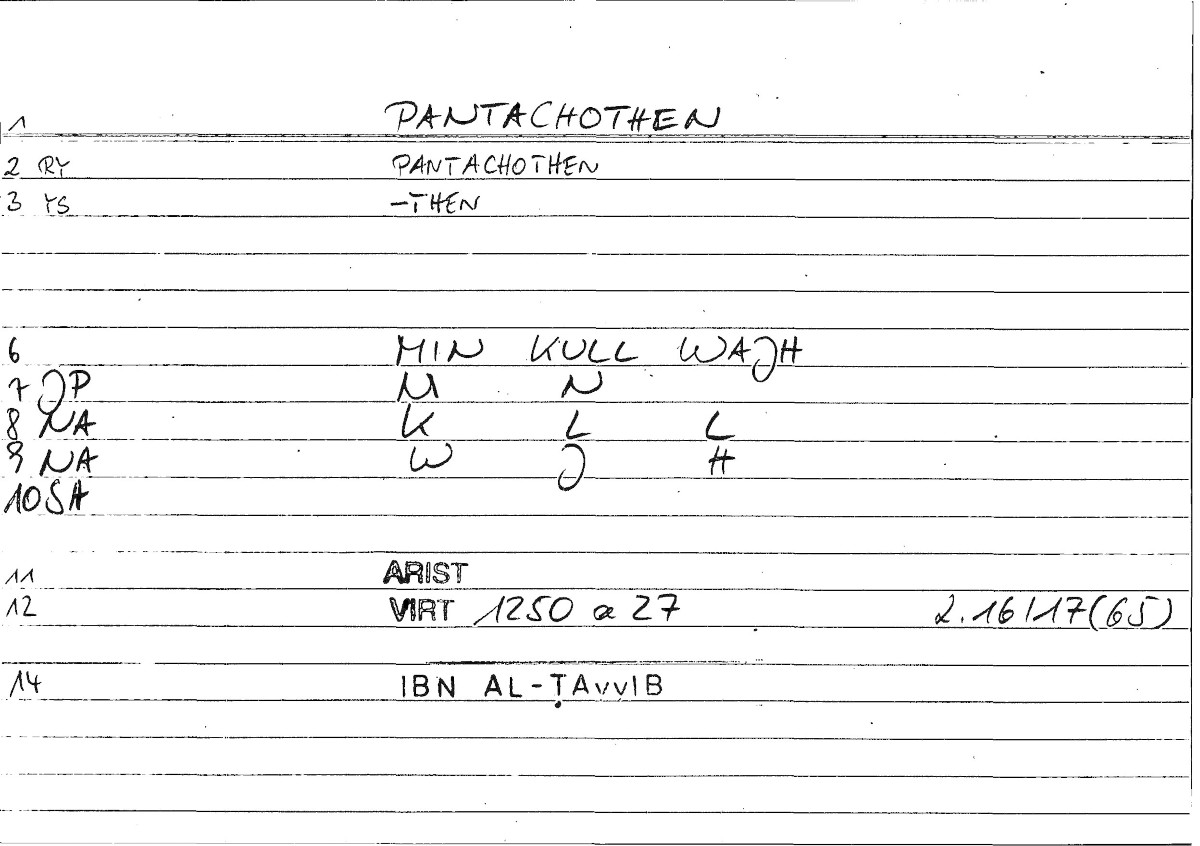 1 PANTACHOTHEN
2 RY PANTACHOTHEN
3 YS -THEN
6 MIN KULL WAJH
7 JP M N
8 NA K L L
9 NA W J H
10 SA
11 ARIST
12 VIRT 1250 a 27 2.16/17(65)
14 IBN AL-ṬAvvIB